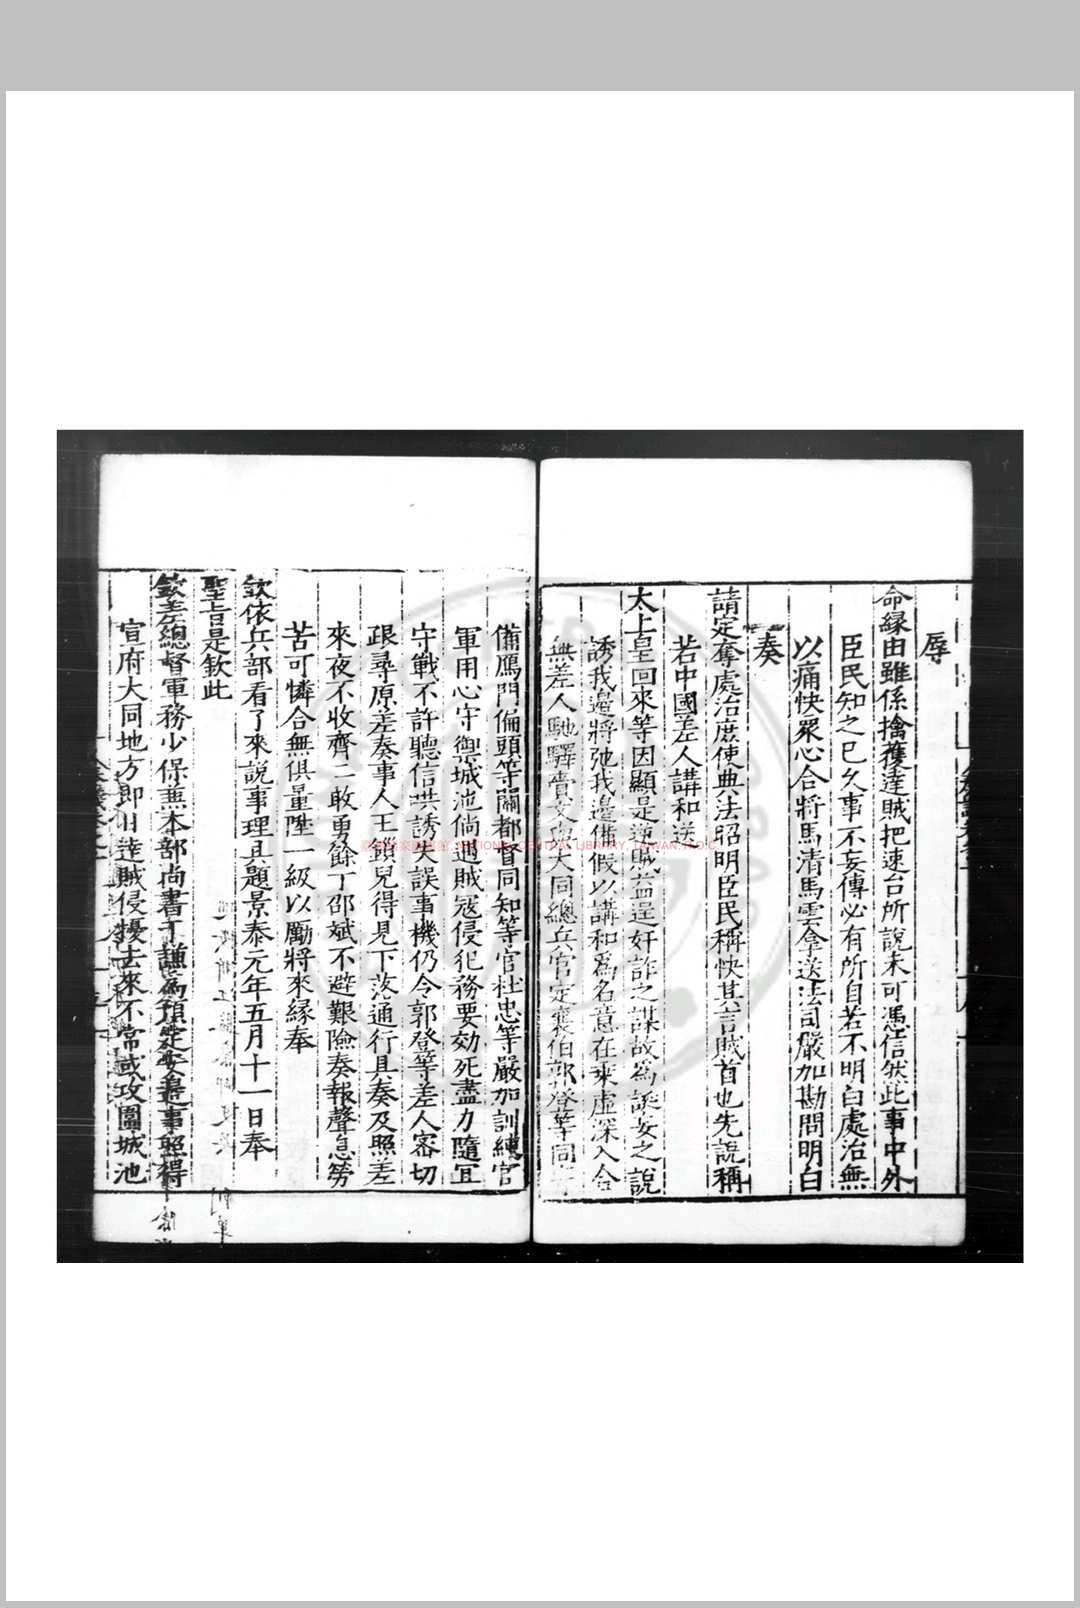 辱
命緣由雖係擒獲達賊把速台所說未可憑信然此事中外
臣民知之已久事不妄傳必有所自若不明白處治無
以痛快眾心合將馬清馬雲拿送法司嚴加勘問明白
奏
請定奪處治庶使典法昭明臣民稱快其言賊首也先說稱
若中國差人講和送
太上皇回來等因顯是逆賊益逞奸詐之謀故為詭妄之說
誘我邊將弛我邊備假以講和為名意在乘虛深入合
無差人馳驛賫文與大同總兵官定襄伯郭登等同
備鴈門偏頭等關都督同知等官杜忠等嚴加訓練官
軍用心守禦城池倘遇賊寇侵犯務要効死盡力隨宜
守戰不許聽信哄誘失誤事機仍令郭登等差人密切
跟尋原差奏事人王鎖兒得見下落通行具奏及照差
來夜不收齊二敢勇餘丁邵斌不避艱險奏報聲息勞
苦可憐合無俱量陞一級以勵將來緣奉
欽依兵部看了來說事理具題景泰元年五月十一日奉
聖旨是欽此
欽差總督軍務少保兼本部尚書于謙為預定安邊事照得
宣府大同地方即旧達賊侵擾去來不常或攻圍城池
NATIONAL CENTRAL LIBRARY, TAIWAN, R.O.C.